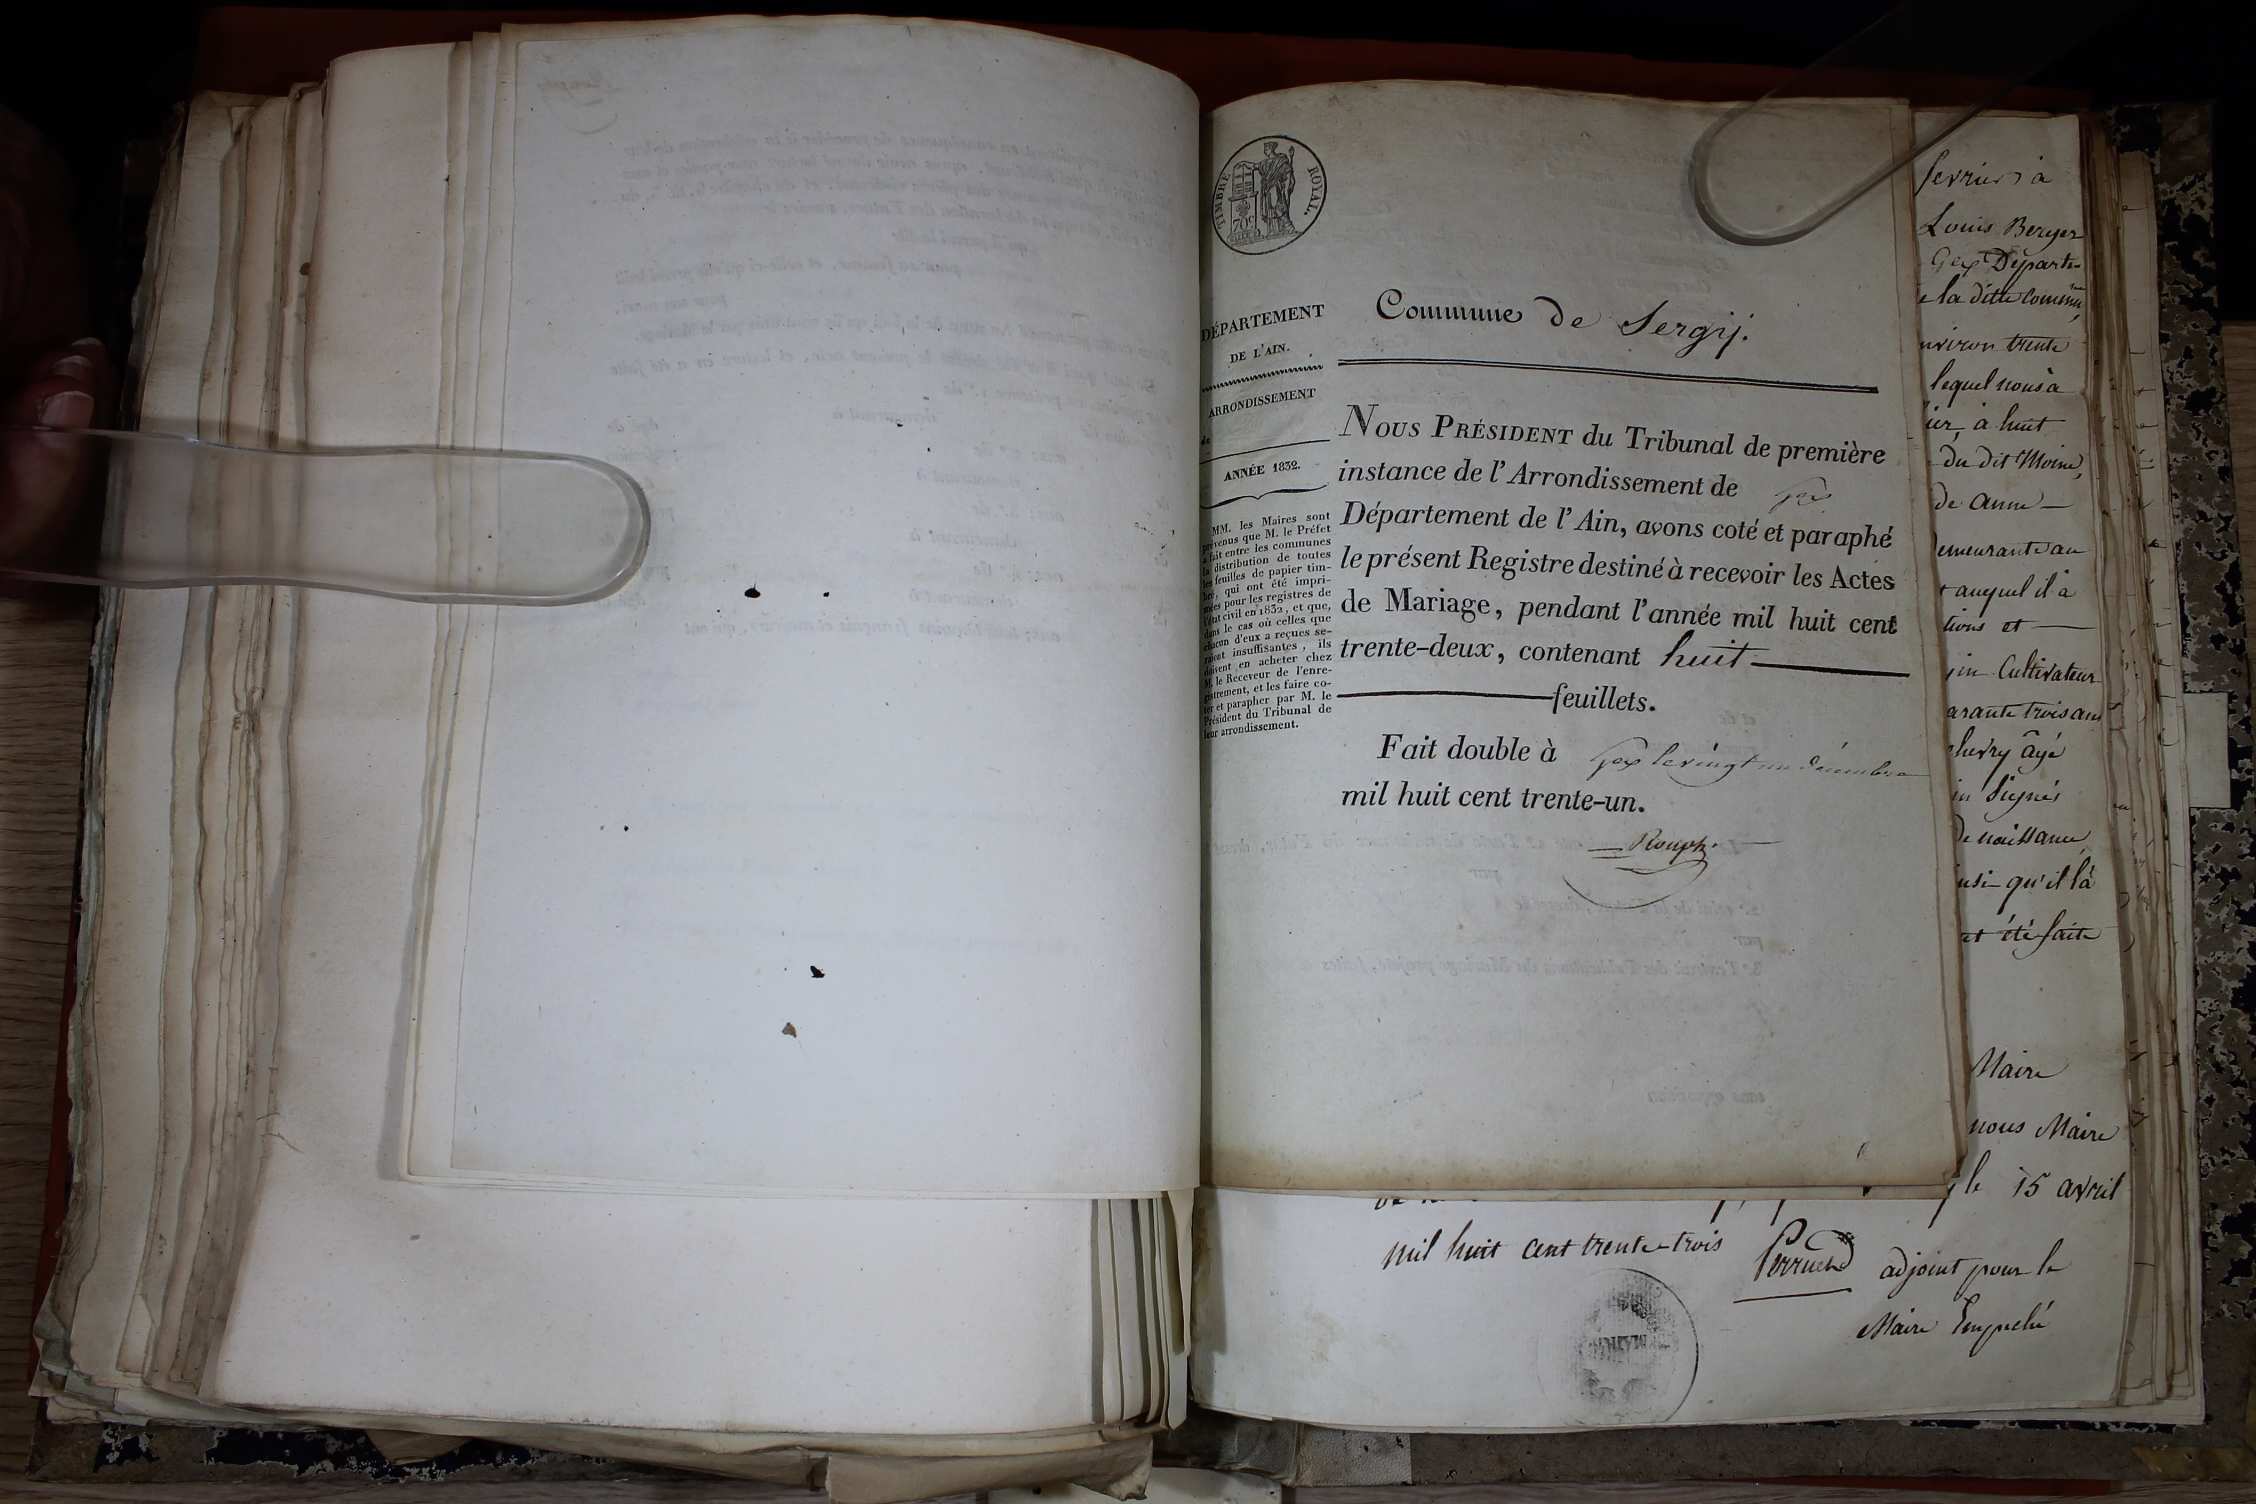 TIMBRE ROYAL.
70c
DÉPARTEMENT
DE L'AIN.
ARRONDISSEMENT
de
ANNÉE 1832.
MM. les Maires sont
prévenus que M. le Préfet
a fait entre les communes
la distribution de toutes
les feuilles de papier tim-
bré, qui ont été impri-
mées pour les registres de
l'état civil en 1832, et que,
dans le cas où celles que
chacun d'eux a reçues se-
raient insuffisantes, ils
doivent en acheter chez
M. le Receveur de l'enre-
gistrement, et les faire co-
ter et parapher par M. le
Président du Tribunal de
leur arrondissement.
Commune de Sergij.
NOUS PRÉSIDENT du Tribunal de première
instance de l'Arrondissement de Gex
Département de l'Ain, avons coté et paraphé
le présent Registre destiné à recevoir les Actes
de Mariage, pendant l'année mil huit cent
trente-deux, contenant huit
feuillets.
Fait double à Gex le vingt un décembre
mil huit cent trente-un.
Rouph
fevrier à
Louis Berger
Gex Départe-
la ditte commune
environ trente
lequel nous a
à huit
du dit Moine
de anne
demeurante au
auquel il a
tions et
Cultivateur
arante trois ans
chevry âgé
signés
de naissance
qu'il la
été faite
Maire
nous Maire
le 15 avril
mil huit cent trente-trois Perruend adjoint pour le
Maire Empeché
MAIRIE